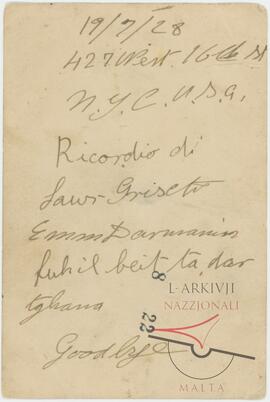 19/7/28
427 West. 16th St
N.Y.C. U.S.a.
Ricordio di
Lawr Griseti
Emm Darmanin
fuh il beit ta dar
tghana
Goodbye
8
22
L-ARKIVJI
NAZZJONALI
MALTA